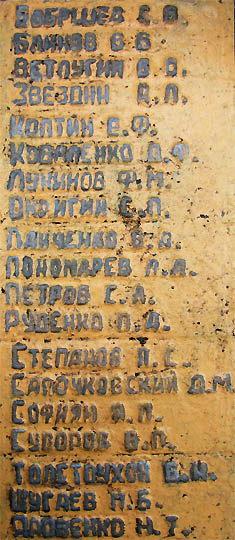 БОБРЫШЕВ С.В.
БЛИНОВ В.В.
ВЕТЛУГИН В.О.
ЗВЕЗДИН В.Л.
КОПТИН Е.Ф.
КОВАЛЕНКО Д.Ф.
ЛУКЬЯНОВ Ф.М.
ПАНЧЕНКО В.О.
ПОНОМАРЕВ П.А.
ПЕТРОВ С.А.
РУДЕНКО П.Д.
СТЕПАНОВ П.С.
САПОЧКОВСКИЙ Д.М.
СОФИЯН И.П.
СУВОРОВ В.П.
ТОЛСТОУХОВ В.И.
ШУГАЕВ Н.Б.